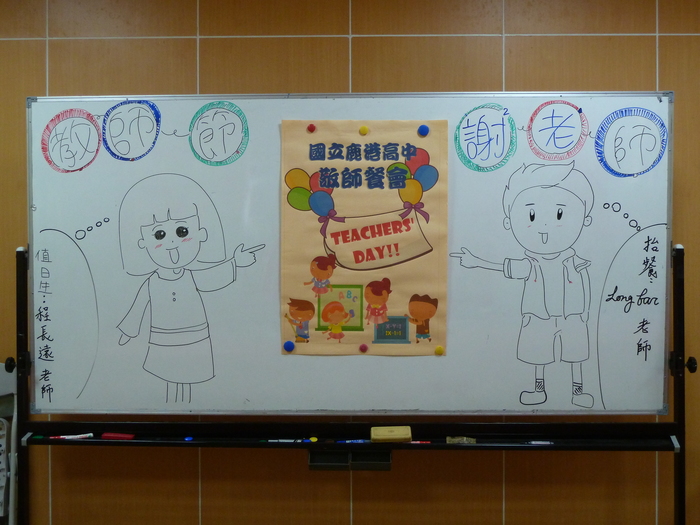 教師節
謝老師
值日生：程長遠老師
國立鹿港高中
敬師餐會
TEACHERS'
DAY!!
ABC
抬餐：
Long far
老師